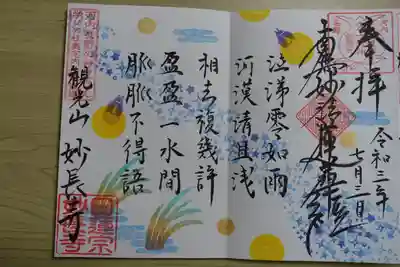 奉拝
令和三年
七月三日
南無妙法蓮華経
泣涕零如雨
河漢清且浅
相去復幾許
盈盈一水間
脈脈不得語
観光山 妙長寺
日蓮宗
妙長寺